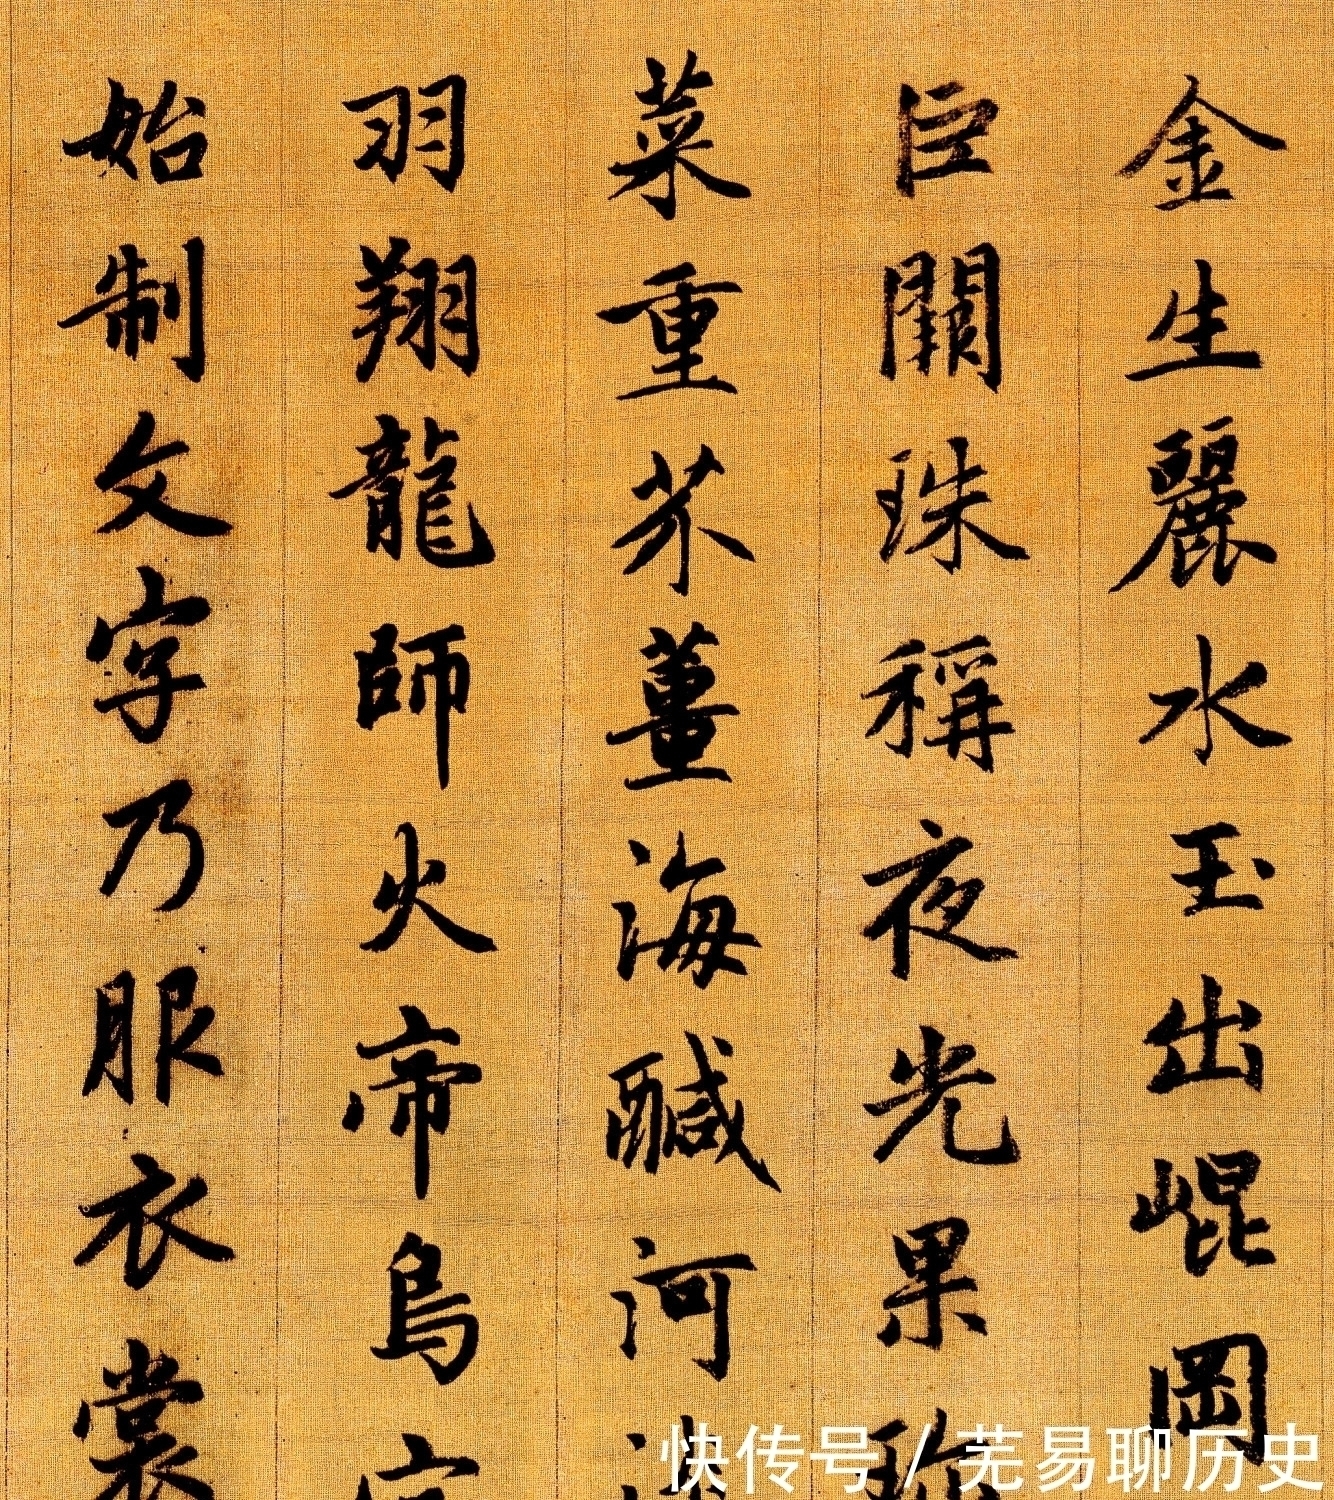 金生麗水玉出崐岡
巨闕珠稱夜光果
菜重芥薑海醎河
羽翔龍師火帝鳥
始制文字乃服衣裳
快传号 / 芜易聊历史